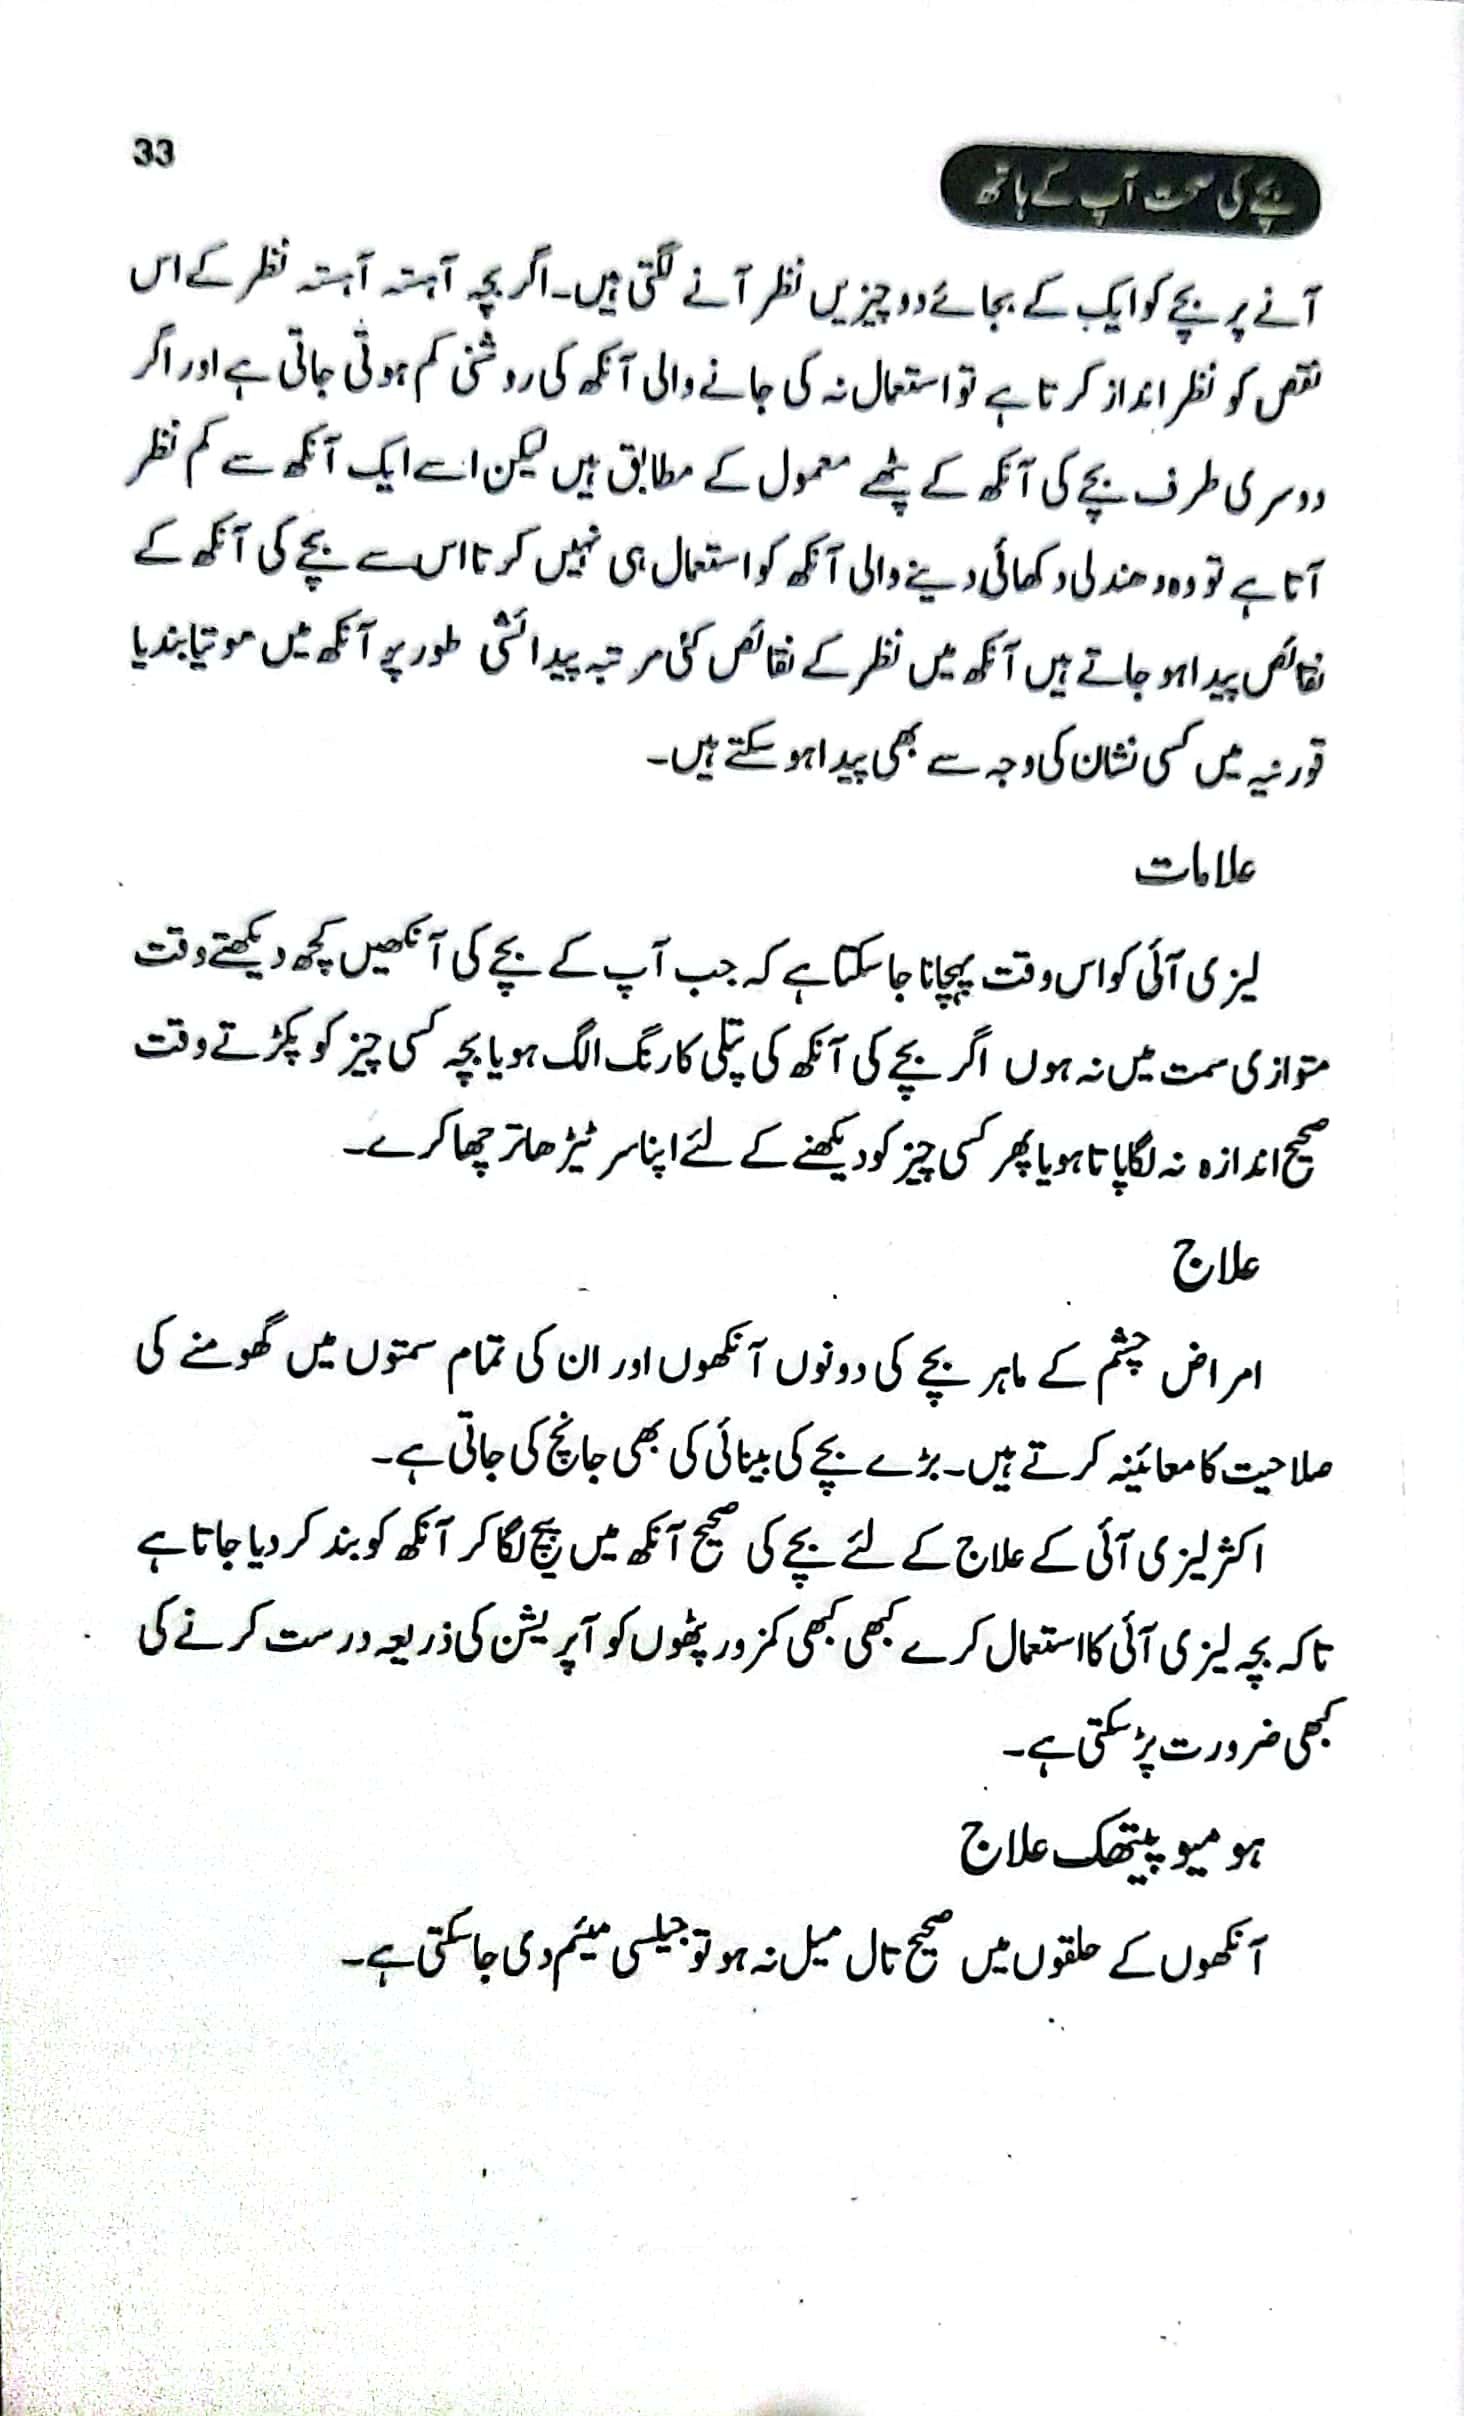 33
بچے کی صحت آپ کے ہاتھ
آنے پر بچے کو ایک کے بجائے دو چیزیں نظر آنے لگتی ہیں۔ اگر بچہ آہستہ آہستہ نظر کے اس
نقص کو نظر انداز کرتا ہے تو استعمال نہ کی جانے والی آنکھ کی روشنی کم ہوتی جاتی ہے اور اگر
دوسری طرف بچے کی آنکھ کے پٹھے معمول کے مطابق ہیں لیکن اسے ایک آنکھ سے کم نظر
آتا ہے تو وہ دھندلی دکھائی دینے والی آنکھ کو استعمال ہی نہیں کرتا اس سے بچے کی آنکھ کے
نقائص پیدا ہو جاتے ہیں آنکھ میں نظر کے نقائص کئی مرتبہ پیدائشی طور پر آنکھ میں موتیا بند یا
قورنیہ میں کسی نشان کی وجہ سے بھی پیدا ہو سکتے ہیں۔
علامات
لیزی آئی کو اس وقت پہچانا جا سکتا ہے کہ جب آپ کے بچے کی آنکھیں کچھ دیکھتے وقت
متوازی سمت میں نہ ہوں اگر بچے کی آنکھ کی پتلی کا رنگ الگ ہو یا بچہ کسی چیز کو پکڑتے وقت
صحیح اندازہ نہ لگا پاتا ہو یا پھر کسی چیز کو دیکھنے کے لئے اپنا سر ٹیڑھا ترچھا کرے۔
علاج
امراض چشم کے ماہر بچے کی دونوں آنکھوں اور ان کی تمام سمتوں میں گھومنے کی
صلاحیت کا معائینہ کرتے ہیں۔ بڑے بچے کی بینائی کی بھی جانچ کی جاتی ہے۔
اکثر لیزی آئی کے علاج کے لئے بچے کی صحیح آنکھ میں پیچ لگا کر آنکھ کو بند کر دیا جاتا ہے
تاکہ بچہ لیزی آئی کا استعمال کرے کبھی کبھی کمزور پٹھوں کو آپریشن کی ذریعہ درست کرنے کی
کبھی ضرورت پڑ سکتی ہے۔
ہومیوپیتھک علاج
آنکھوں کے حلقوں میں صحیح تال میل نہ ہو تو جیلسی میئم دی جا سکتی ہے۔